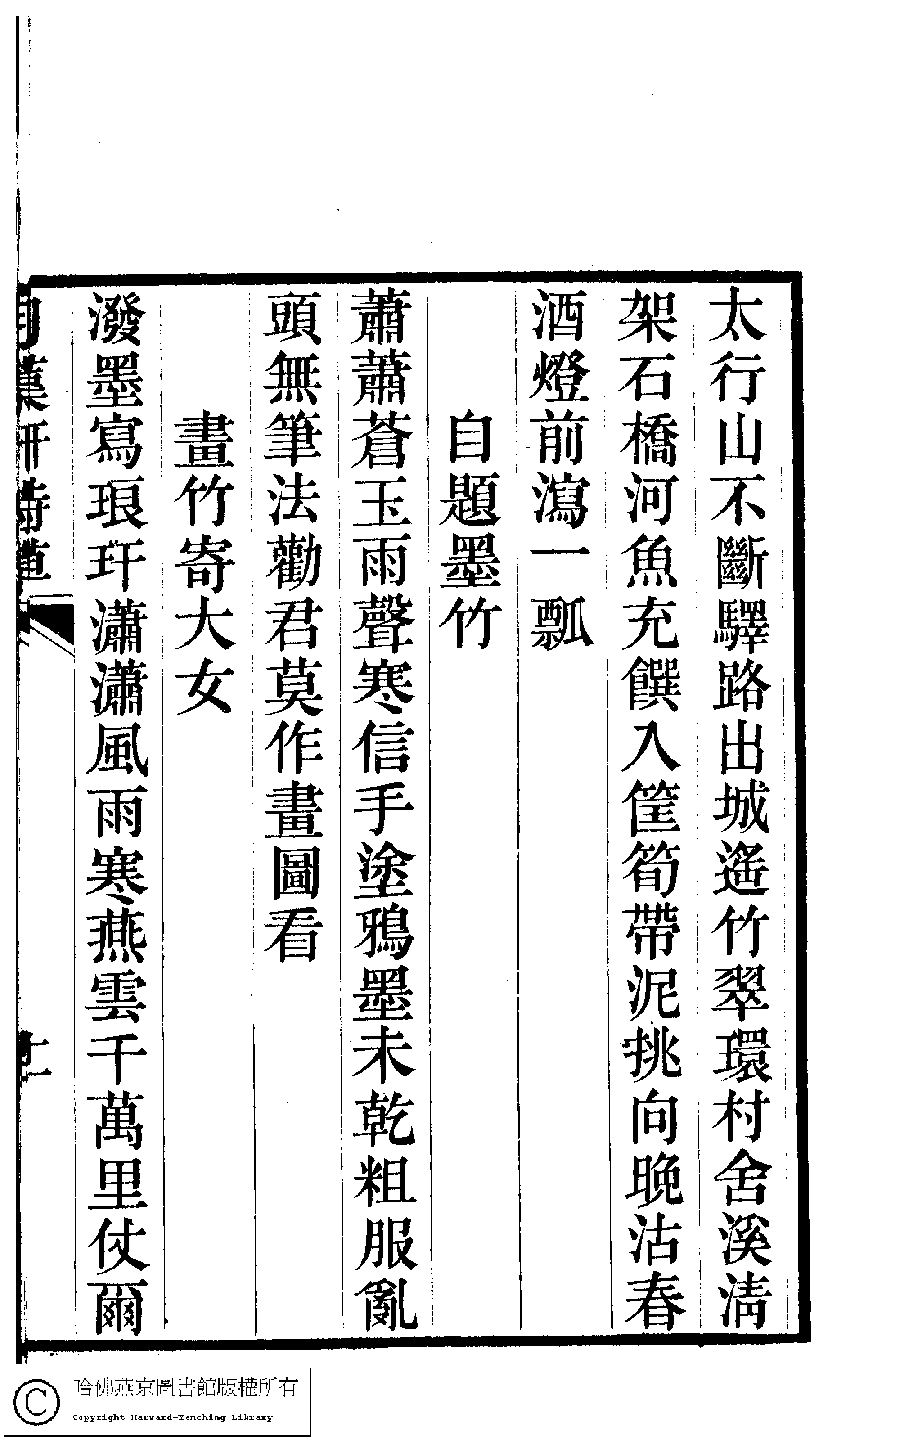 太行山不斷驛路出城遙竹翠環村舍溪清
架石橋河魚充饌入筐筍帶泥挑向晚沽春
酒燈前瀉一瓢
自題墨竹
蕭蕭蒼玉雨聲寒信手塗鴉墨未乾粗服亂
頭無筆法勸君莫作畫圖看
畫竹寄大女
潑墨寫琅玕瀟瀟風雨寒燕雲千萬里仗爾
哈佛燕京圖書館版權所有
Copyright Harvard-Yenching Library